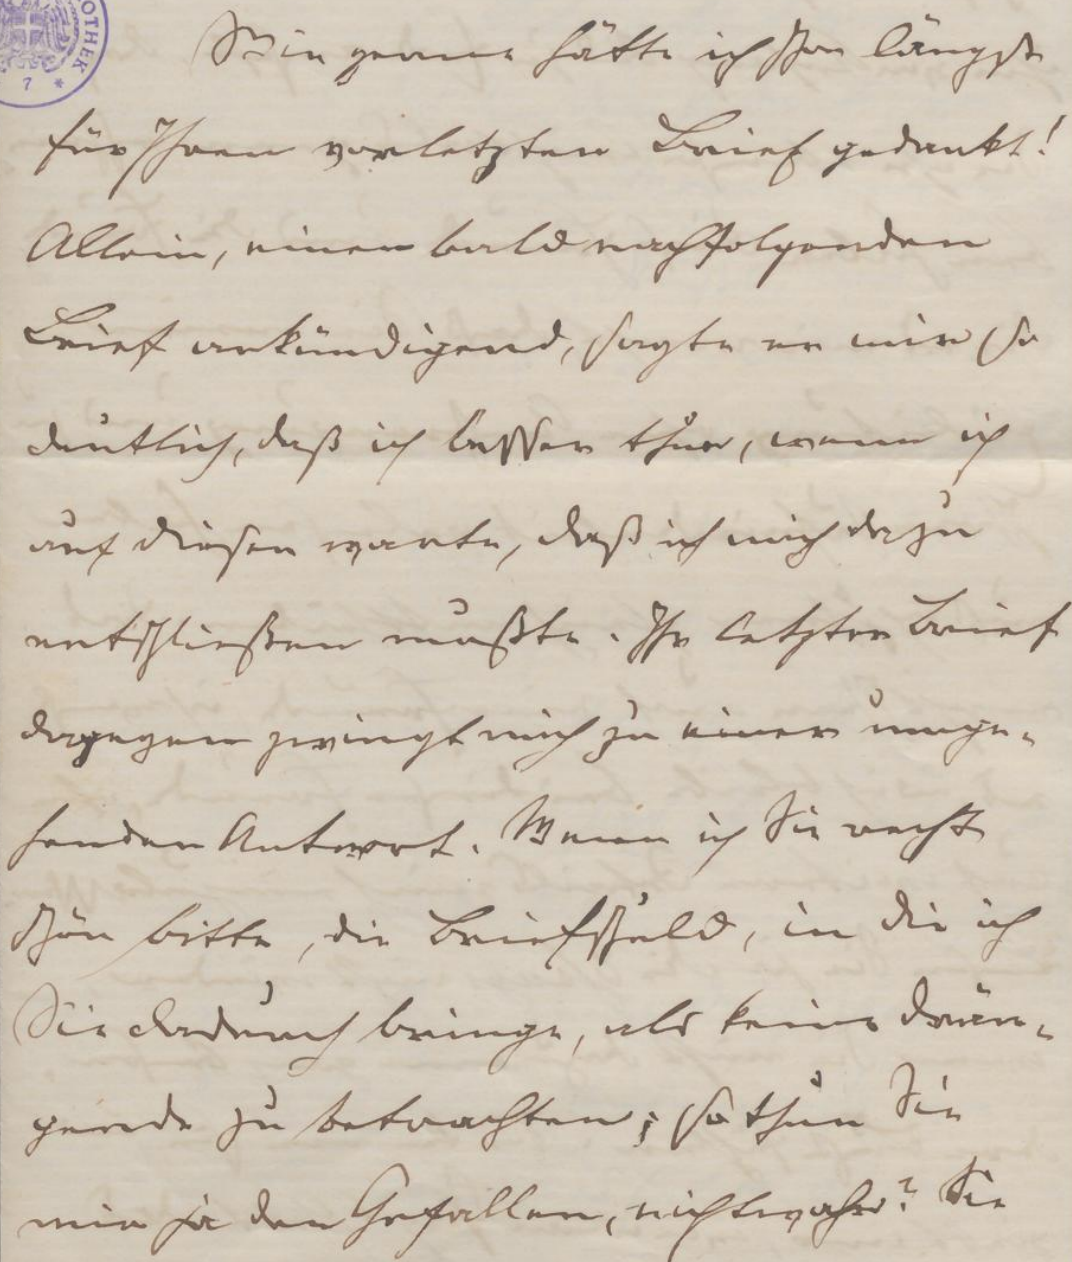 OTHEK
7 *
Wie gerne hätte ich schon längst
für Ihren vorletzten Brief gedankt!
Allein, einen bald nachfolgenden
Brief ankündigend, sagte er mir so
deutlich, daß ich besser thue, wenn ich
auf diesen warte, daß ich mich dazu
entschließen mußte. Ihr letzter Brief
dagegen zwingt mich zu einer umge-
henden Antwort. Wenn ich Sie recht
schön bitte, die Briefschuld, in die ich
Sie dadurch bringe, als keine drän-
gende zu betrachten; so thun Sie
mir ja den Gefallen, nicht wahr? Sie